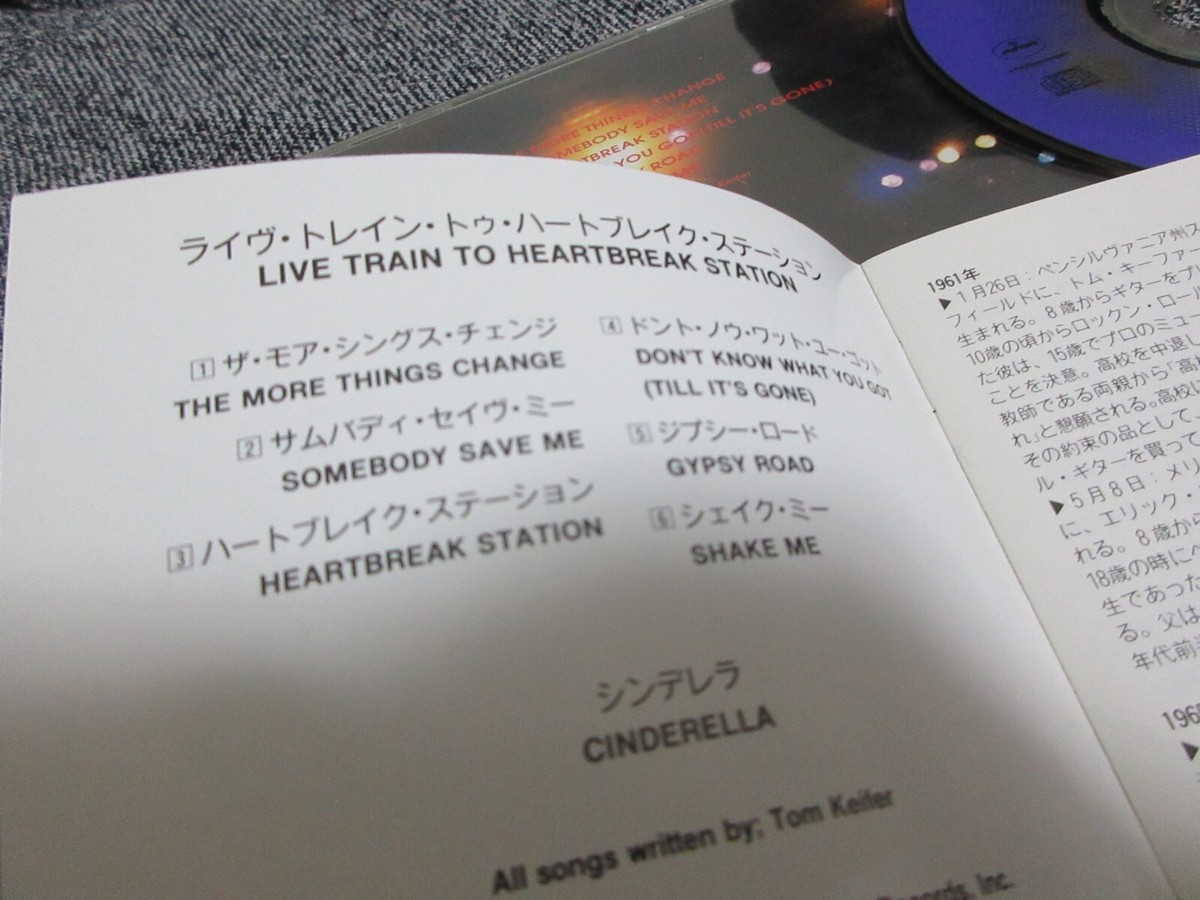 ライヴ・トレイン・トゥ・ハートブレイク・ステーション
LIVE TRAIN TO HEARTBREAK STATION
1 ザ・モア・シングス・チェンジ
THE MORE THINGS CHANGE
2 サムバディ・セイヴ・ミー
SOMEBODY SAVE ME
3 ハートブレイク・ステーション
HEARTBREAK STATION
4 ドント・ノウ・ワット・ユー・ゴット
DON'T KNOW WHAT YOU GOT
(TILL IT'S GONE)
5 ジプシー・ロード
GYPSY ROAD
6 シェイク・ミー
SHAKE ME
シンデレラ
CINDERELLA
All songs written by; Tom Keifer
Records, Inc.
1961年
▶1月26日：ペンシルヴァニア州ス
フィールドに、トム・キーファ
生まれる。8歳からギターをプレ
10歳の頃からロックン・ロール
た彼は、15歳でプロのミュー
ことを決意。高校を中退し
教師である両親から「高
れ」と懇願される。高校
その約束の品として
ル・ギターを買って
▶5月8日：メリ
に、エリック・
れる。8歳か
18歳の時にペ
生であった
る。父は
年代前
196
▶
ORE THINGS CHANGE
OMEBODY SAVE ME
TBREAK STATION
YOU GO (TILL IT'S GONE)
ROAD
Keifer